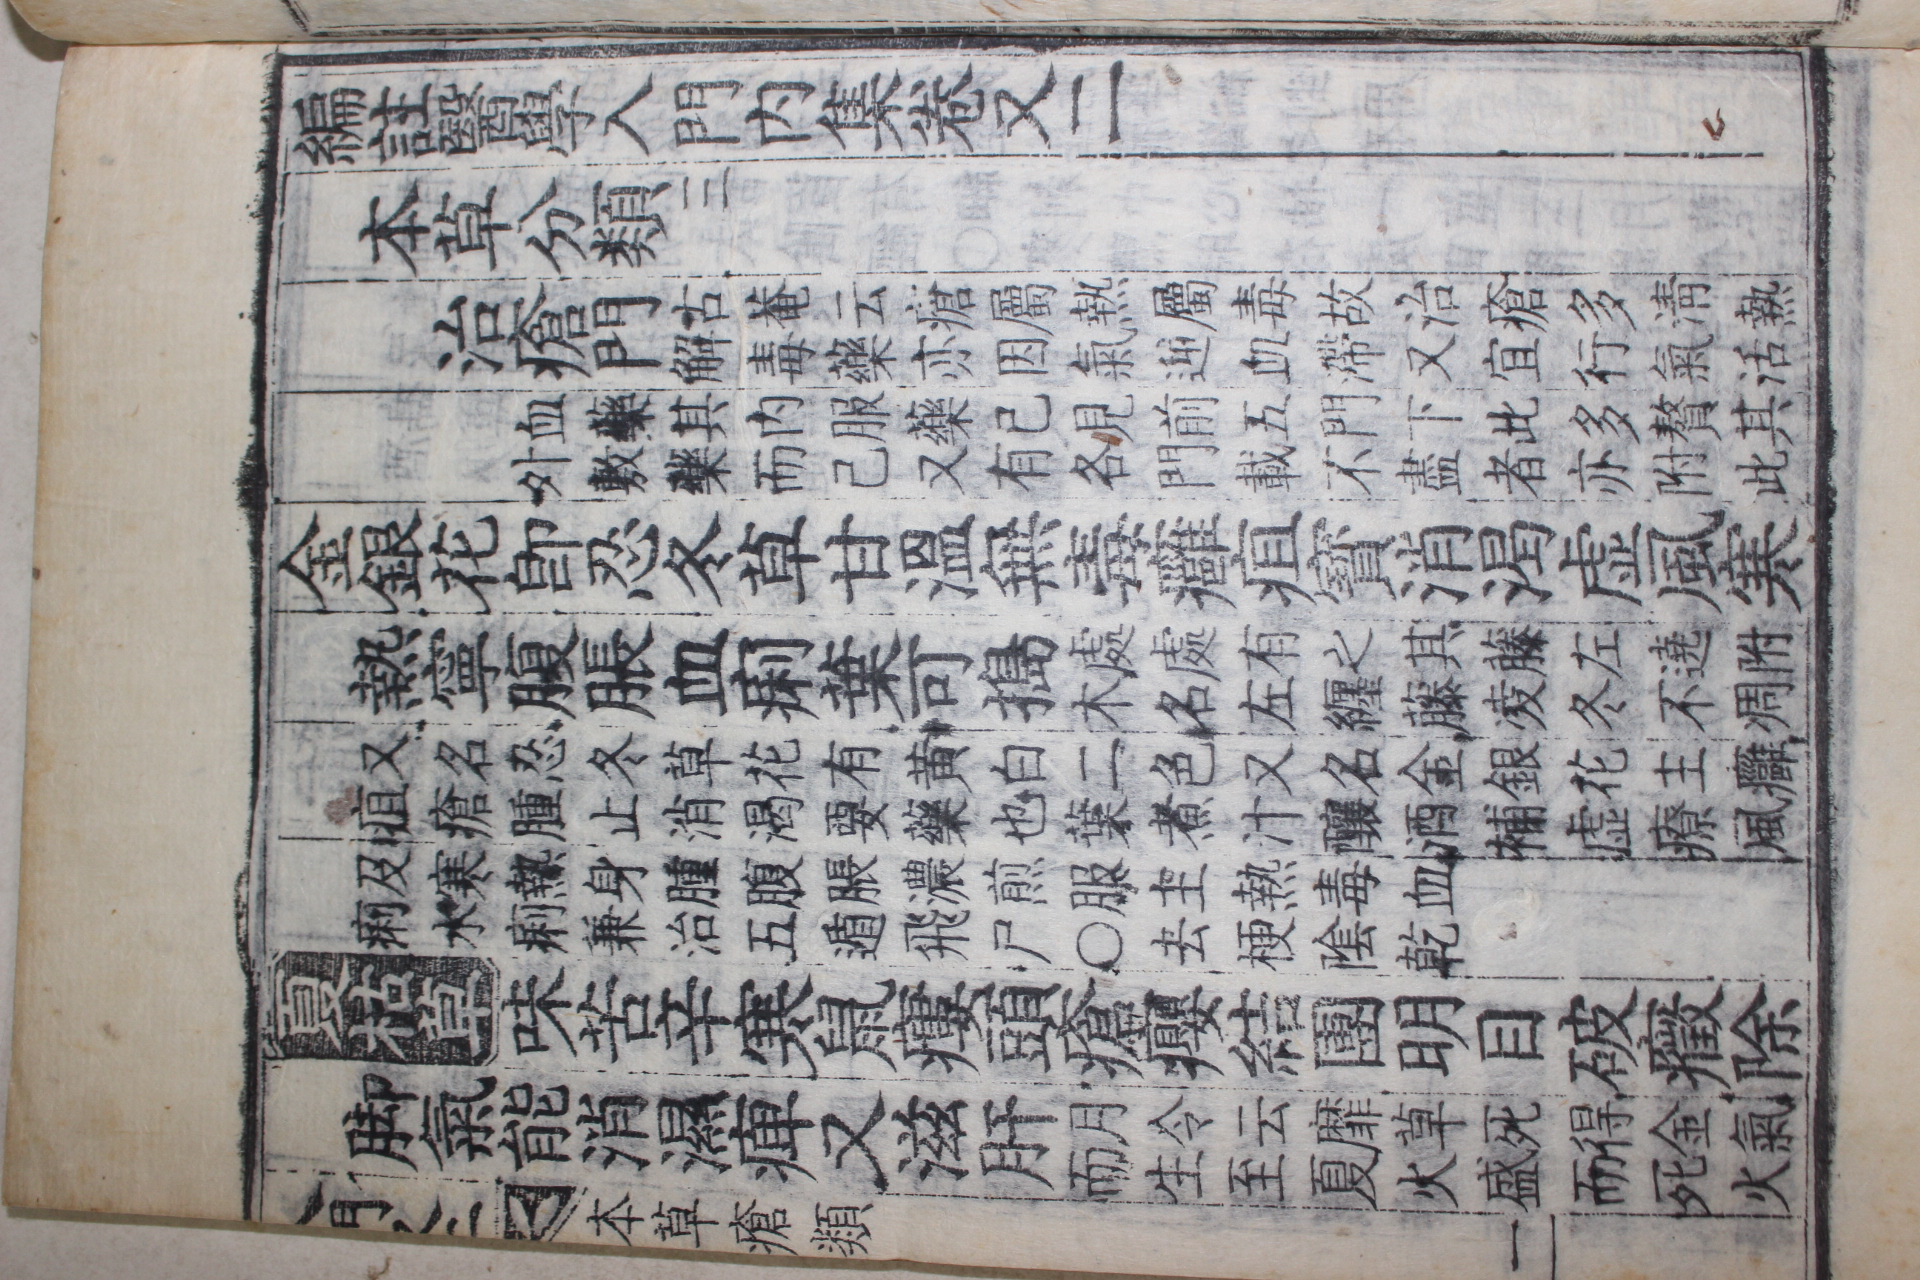 編註醫學入門內集卷又二
本草分類 三
治瘡門
古菴云瘡屬熱屬毒故治瘡多淸熱
解毒藥亦因氣逆血滯又宜行氣活
血藥其內服藥已見前五門下此多贅其
外敷藥而已又有各門載不盡者亦附此
金銀花即忍冬草甘溫無毒癰疽寶消渴虛風寒
熱寧腹脹血痢葉可搗
處處有之其藤左遶附
木名左纏藤凌冬不凋
又名忍冬草花有黃白二色又名金銀花主癰
疽瘡腫止消渴要藥也葉煮汁釀酒補虛療風
及寒熱身腫腹脹濃煎服主熱毒血
痢水痢兼治五遁飛尸〇去梗陰乾
夏枯草味苦辛寒鼠瘻頭瘡癭結團明目破癥除
脚氣能消濕痺又滋肝
月令云靡草死得金氣
而生至夏火盛而死火
入門又二
本草瘡類
一